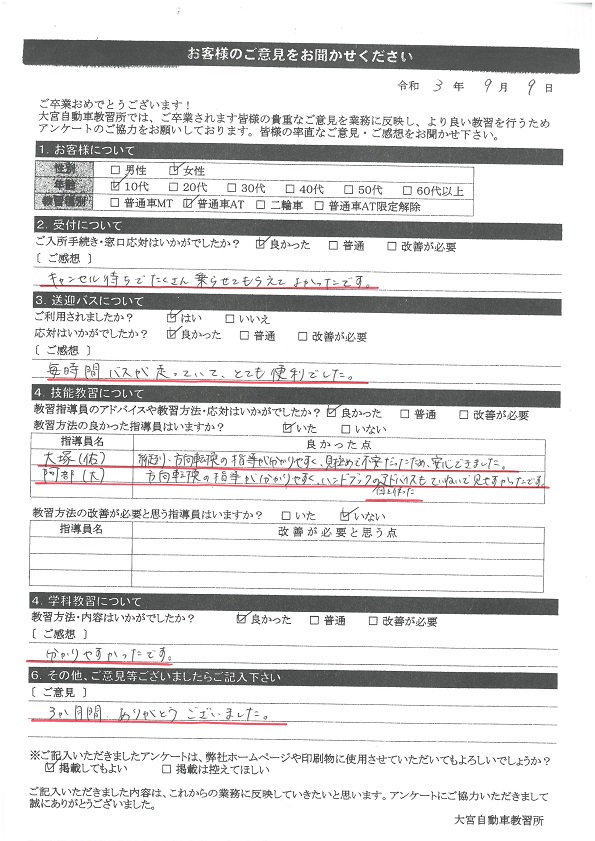 お客様のご意見をお聞かせください
令和 3 年 9 月 9 日
ご卒業おめでとうございます！
大宮自動車教習所では、ご卒業されます皆様の貴重なご意見を業務に反映し、より良い教習を行うため
アンケートのご協力をお願いしております。皆様の率直なご意見・ご感想をお聞かせ下さい。
1. お客様について
性別 □男性 ☑女性
年齢 ☑10代 □20代 □30代 □40代 □50代 □60代以上
教習種別 □普通車MT ☑普通車AT □二輪車 □普通車AT限定解除
2. 受付について
ご入所手続き・窓口応対はいかがでしたか？ ☑良かった □普通 □改善が必要
〔 ご感想 〕
キャンセル待ちでたくさん乗らせてもらえてよかったです。
3. 送迎バスについて
ご利用されましたか？ ☑はい □いいえ
応対はいかがでしたか？ ☑良かった □普通 □改善が必要
〔 ご感想 〕
毎時間バスが走っていて、とても便利でした。
4. 技能教習について
教習指導員のアドバイスや教習方法・応対はいかがでしたか？ ☑良かった □普通 □改善が必要
教習方法の良かった指導員はいますか？ ☑いた □いない
指導員名 良かった点
大塚(佑) 方向転換の指導が分かりやすく、初めて不安だったため、安心できました。
阿部(大) 方向転換の指導が分かりやすく、ハンドブックのアドバイスもていねいで見やすかったです
教習方法の改善が必要と思う指導員はいますか？ □いた ☑いない
指導員名 改善が必要と思う点
4. 学科教習について
教習方法・内容はいかがでしたか？ ☑良かった □普通 □改善が必要
〔 ご感想 〕
分かりやすかったです。
6. その他、ご意見等ございましたらご記入下さい
〔 ご意見 〕
3か月間 ありがとうございました。
※ご記入いただきましたアンケートは、弊社ホームページや印刷物に使用させていただいてもよろしいでしょうか？
☑掲載してもよい □掲載は控えてほしい
ご記入いただきました内容は、これからの業務に反映していきたいと思います。アンケートにご協力いただきまして
誠にありがとうございました。
大宮自動車教習所